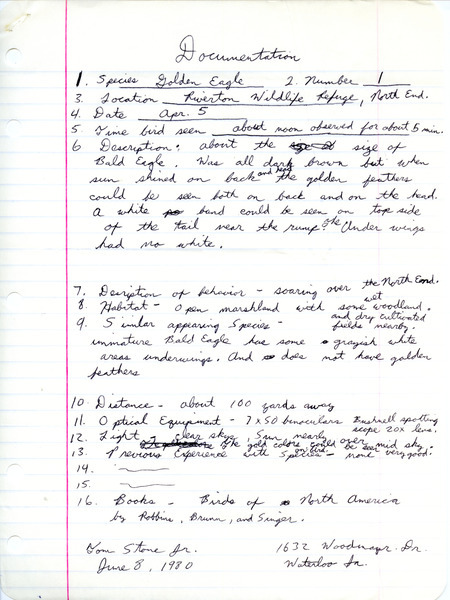 Documentation
1. Species Golden Eagle 2. Number 1
3. Location Riverton Wildlife Refuge, North End.
4. Date Apr. 5
5. Time bird seen about noon observed for about 5 min.
6 Description: about the size of
Bald Eagle. Was all dark brown but when
sun shined on back and head the golden feathers
could be seen both on back and on the head.
A white band could be seen on top side
of the tail near the rump. The Under wings
had no white.
7. Desription of behavior - soaring over the North End.
8. Habitat - Open marshland with some wet woodland.
and dry cultivated
fields nearby.
9. Similar appearing Species -
immature Bald Eagle has some grayish white
areas underwings. And does not have golden
feathers
10. Distance - about 100 yards away
11. Optical Equipment - 7x50 binoculars Bushnell spotting
scope 20x lens.
12. Light - clear skys, Sun nearly over mid sky.
The gold colors could be seen very good.
on bird.
13. Previous Experience with Species - none
14. ———
15. ———
16. Books - Birds of North America
by Robbins, Brunn, and Singer.
Tom Stone Jr. 1632 Woodmayr Dr.
June 8, 1980 Waterloo Ia.